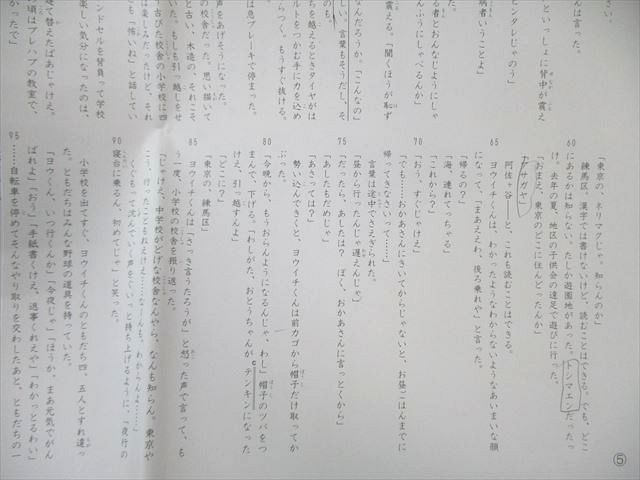 さい。
んは言った。
ンタレじゃのう」
といっしょに背中が震え
病者いうことよ」
る者とおんなじようにしゃ
んふうにしゃべるんか」
震える。「聞くほうが恥ず
なんだろうか、「こんなの」
しい。言葉もそうだし、そ
のも、
ちを越えるときタイヤがは
ルトをつかむ手に力を込め
らつく。もうすぐ抜ける。
は急ブレーキで停まった。
声をあげそうになった。
と古い、木造の、それこそ、
の校舎だった。思い描いて
いた。もしも引っ越しをせ
古びた校舎の小学校に四
は楽しみだったけど、それ
も「怖いね」と話してい
ンドセルを背負って学校
楽しい気分になったのは、
建て替えたばあじゃけえ。
頃はプレハブの教室で、
かったで」
「東京の、ネリマクじゃ。知らんのか」
60 練馬区。漢字では書けないけど、読むことはできる。でも、どこ
にあるかは知らない。たしか遊園地があった。トシマエンだったっ
け。去年の夏、地区の子供会の遠足で遊びに行った。
「おまえ、東京のどこに住んどったんか」
「アサガヤ」
阿佐ヶ谷――と、これも読むことはできる。
65 ヨウイチくんは、まあわかったようなわからないようなあいまいな顔
になって、「まあええわ、後ろ乗れや」と言った。
「帰るの?」
「海、連れてっちゃる」
「これから?」
70 「おう、すぐじゃけえ」
「でも……おかあさんにきいてからじゃないと、お昼ごはんまでに
帰ってきなさいって……」
言葉は途中でさえぎられた。
「昼から行ったんじゃ遅えんじゃ」
75 「だったら、あしたは? ぼく、おかあさんに言っとくから」
「あしたもだめじゃ」
「あさっては?」
勢い込んできくと、ヨウイチくんは前カゴから帽子だけ取ってか
ぶった。
80 「今晩から、もうおらんようになるんじゃ、わし」帽子のツバをつ
まんで、下げる。「わしがた、おとうちゃんがテンキンになった
けえ、引っ越すんよ」
「どこに?」
「東京の、練馬区」
85 ヨウイチくんは「さっき言うたろうが」と怒った声で言って、も
う一度、小学校の校舎を振り返った。
「じゃけえ、中学校がどげな校舎なんやら、なんも知らん。東京や
こう、行ったこともねえけえ……なーんも、わからんよ……」
くぐもって沈んでいく声をぐいっと持ち上げるように、「夜行の
90 寝台に乗るん、初めてじゃ」と笑った。
小学校を出てすぐ、ヨウイチくんのともだち四、五人とすれ違っ
た。ともだちはみんな野球の道具を持っていた。
「ヨウくん、いつ行くんか」「今夜じゃ」「ほうか、まあ元気でがん
ばれよ」「おう」「手紙書くけえ、返事くれえや」「わかっとるわい」
95 ……自転車を停めてそんなやり取りを交わしたあと、ともだちの一
c
⑤